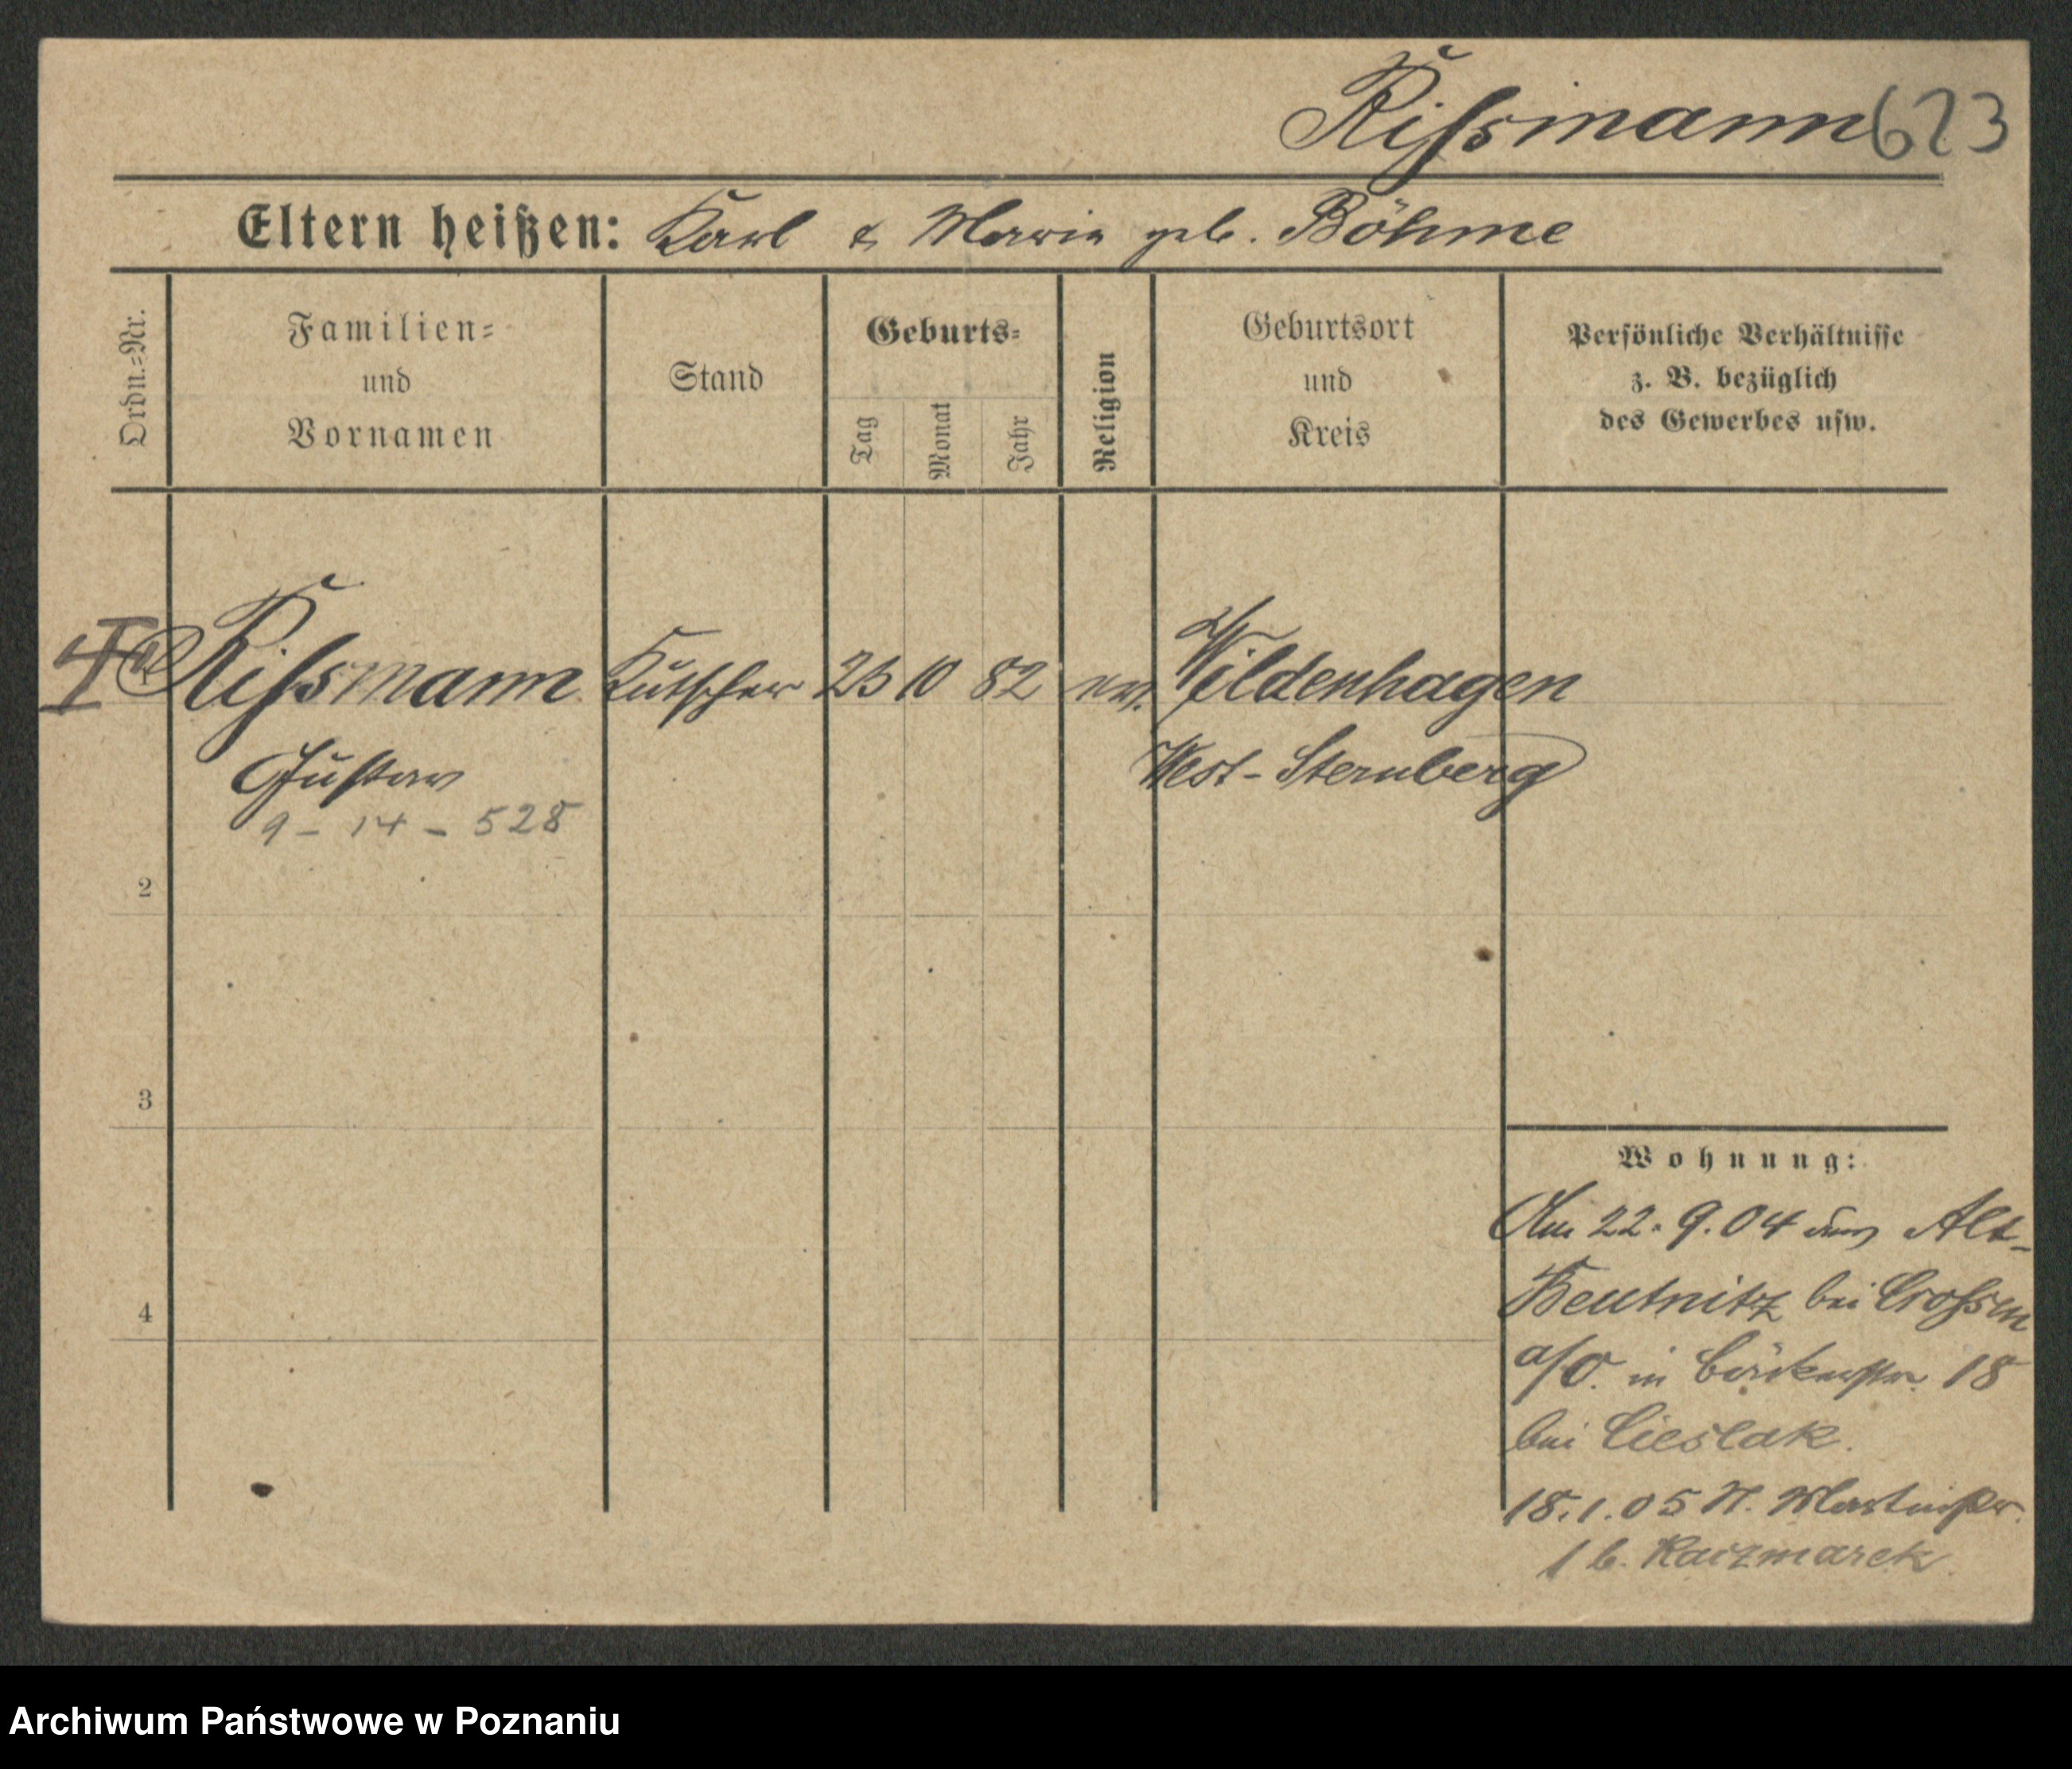 Rissmann 623
Eltern heißen: Karl & Marie geb. Böhme
Ordn.=Nr.
Familien=
und
Vornamen
Stand
Geburts=
Tag
Monat
Jahr
Religion
Geburtsort
und
Kreis
Persönliche Verhältnisse
z. B. bezüglich
des Gewerbes usw.
Rissmann Kutscher 23 10 82 ev. Wildenhagen
Gustav West-Sternberg
9 - 14 - 528
2
3
4
Wohnung:
Am 22.9.04 aus Alt-
Beutnitz bei Crossen
a/O. in Bäckerstr. 18
bei Cieslak.
18.1.05 N. Martinstr.
1 b. Kaczmarek
Archiwum Państwowe w Poznaniu